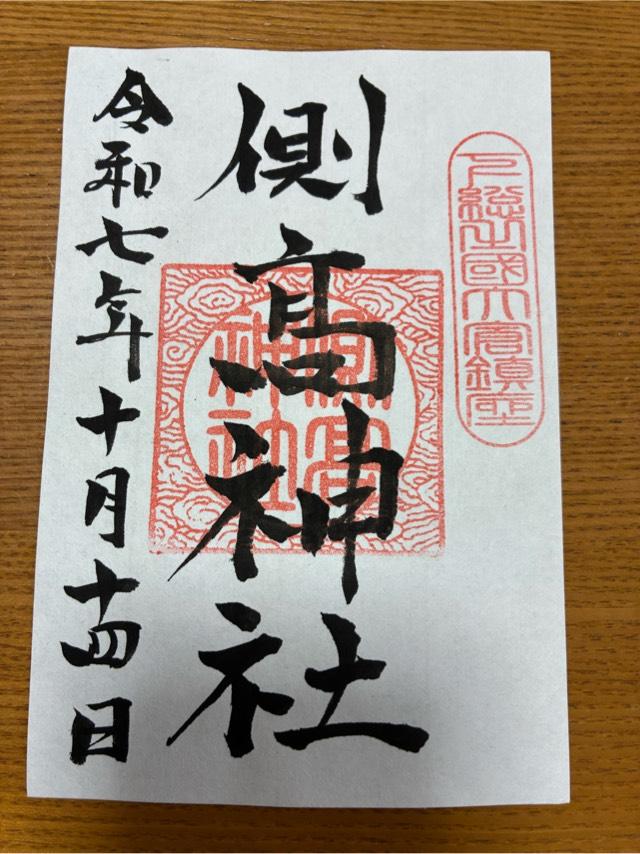 下総之國大倉鎮座
側高神社
側高神社
令和七年十月十四日